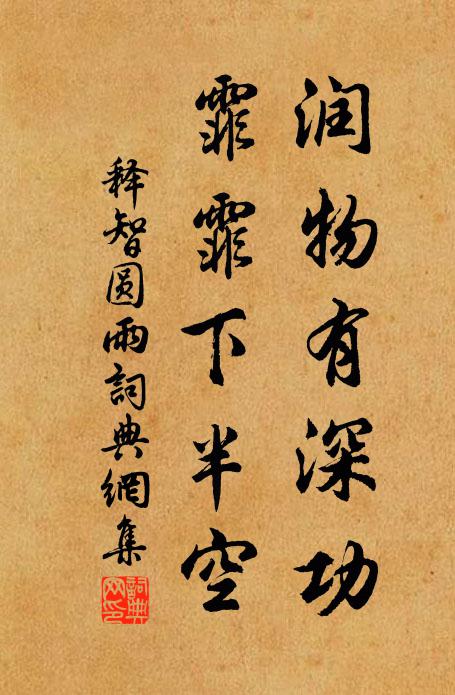 润物有深功
霏霏下半空
释智圆雨詞典網集
詞典网印